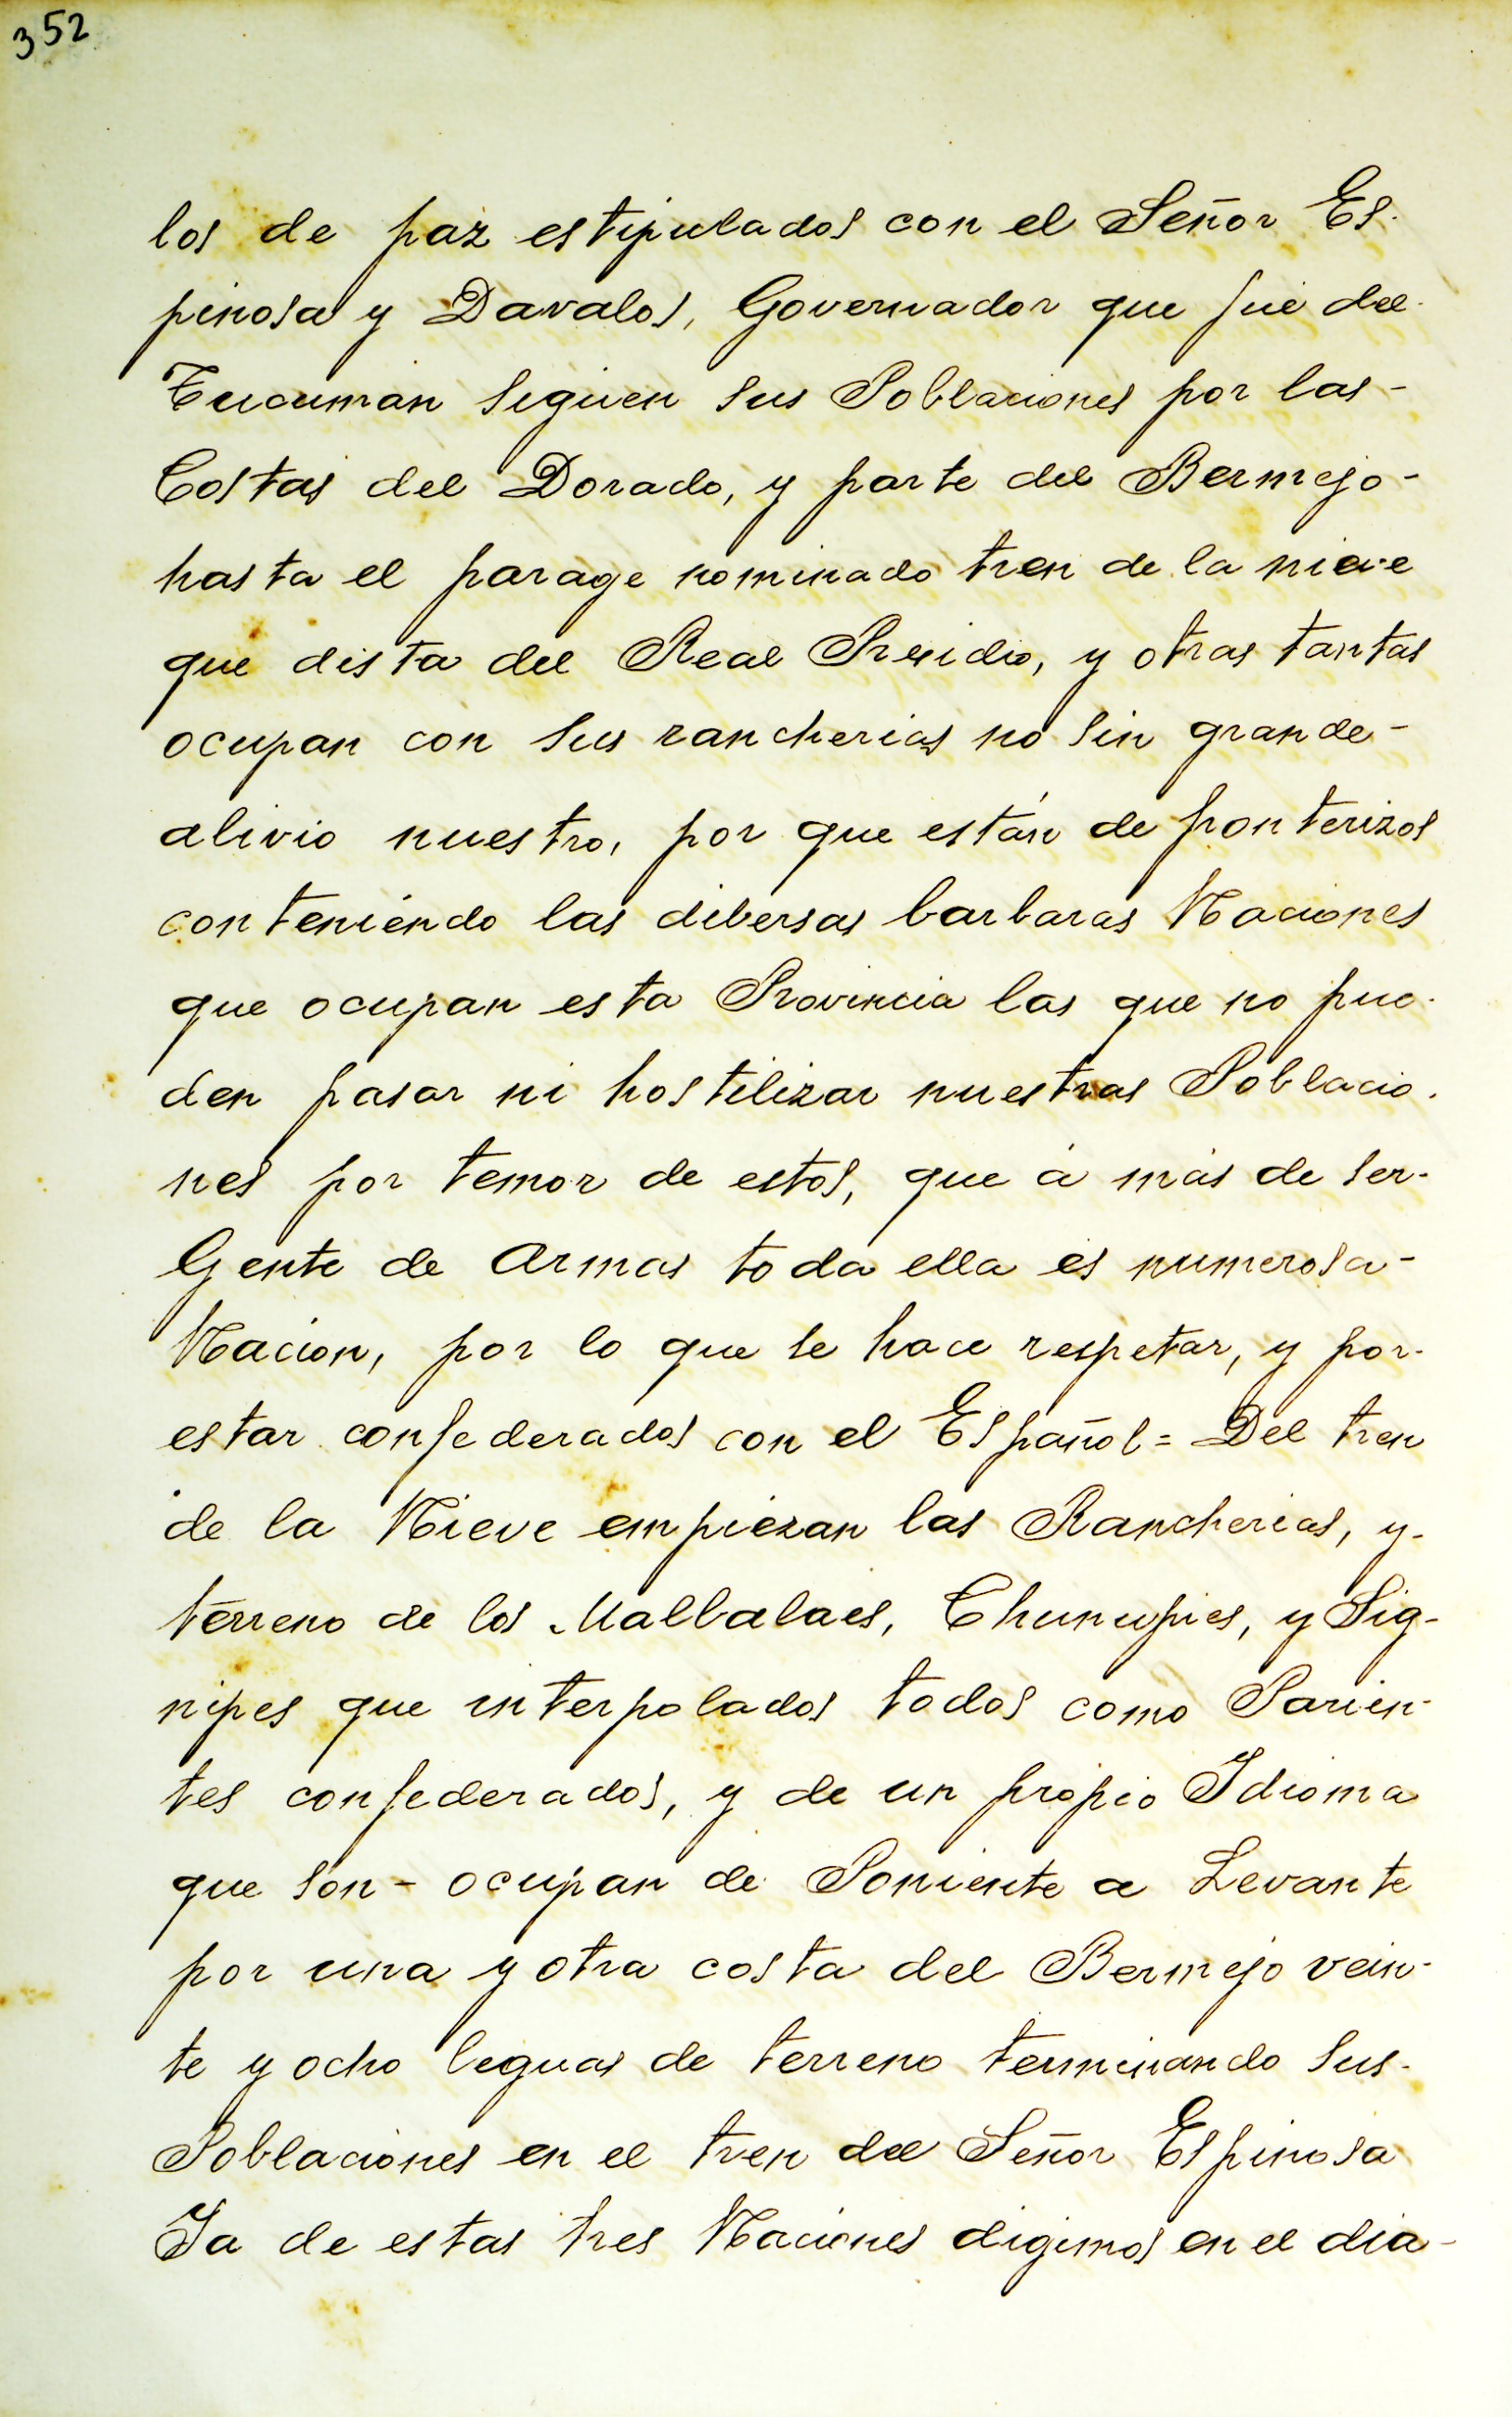 352
los de paz estipulados con el Señor Es-
pinosa y Davalos, Governador que fué del
Tucuman siguen sus Poblaciones por las-
Costas del Dorado, y parte del Bermejo-
hasta el parage nominado tren de la nieve
que dista del Real Presidio, y otras tantas
ocupan con sus rancherias no sin grande-
alivio nuestro, por que están de fronterizos
conteniendo las dibersas barbaras Naciones
que ocupan esta Provincia las que no pue-
den pasar ni hostilizar nuestras Poblacio-
nes por temor de estos, que á más de ser-
Gente de Armas toda ella es numerosa-
Nacion, por lo que se hace respetar, y por-
estar confederados con el Español= Del tren
de la Nieve empiezan las Rancherias, y-
terreno de los Malbalaes, Chunupies, y Sig-
nipes que interpolados todos como Parien-
tes confederados, y de un propio Idioma
que son- ocupan de Poniente a Levante
por una y otra costa del Bermejo vein-
te y ocho leguas de terreno terminando sus-
Poblaciones en el tren del Señor Espinosa
Ya de estas tres Naciones digimos en el dia-